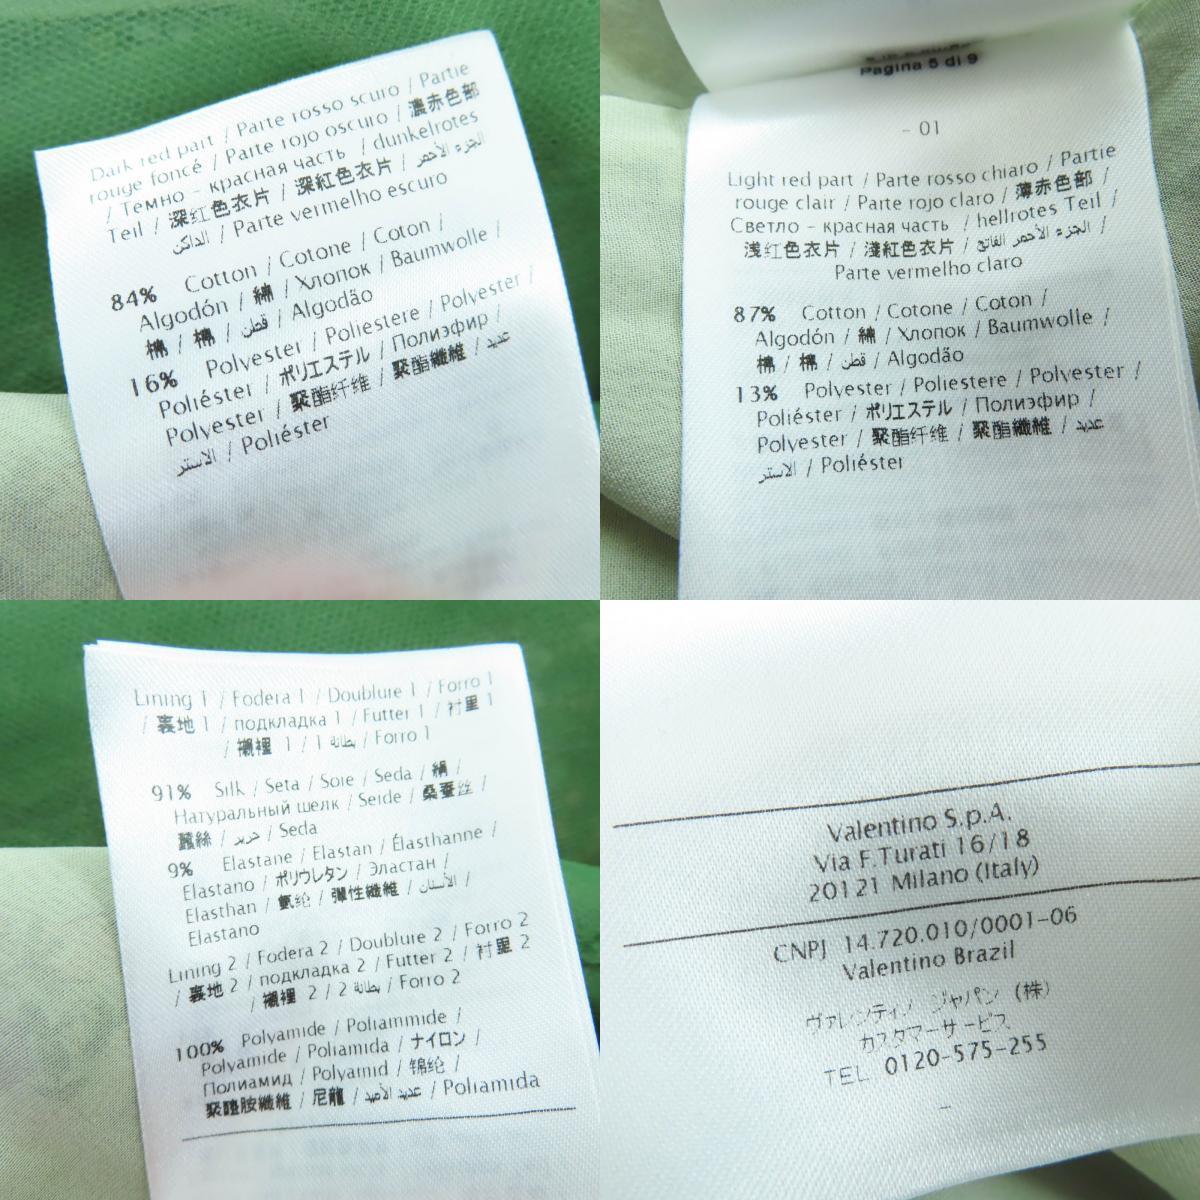 Dark red part / Parte rosso scuro / Partie
rouge foncé / Parte rojo oscuro / 濃赤色部
/ Темно - красная часть / dunkelrotes
Teil / 深红色衣片 / 深紅色衣片 / الجزء الأحمر
الداكن / Parte vermelho escuro
84% Cotton / Cotone / Coton /
Algodón / 綿 / Хлопок / Baumwolle /
棉 / 棉 / قطن / Algodão
16% Polyester / Poliestere / Polyester /
Poliéster / ポリエステル / Полиэфир /
Polyester / 聚酯纤维 / 聚酯纖維 / عديد
الاستر / Poliéster
Pagina 5 di 9
- 01
Light red part / Parte rosso chiaro / Partie
rouge clair / Parte rojo claro / 薄赤色部 /
Светло - красная часть / hellrotes Teil /
浅红色衣片 / 淺紅色衣片 / الجزء الأحمر الفاتح /
Parte vermelho claro
87% Cotton / Cotone / Coton /
Algodón / 綿 / Хлопок / Baumwolle /
棉 / 棉 / قطن / Algodão
13% Polyester / Poliestere / Polyester /
Poliéster / ポリエステル / Полиэфир /
Polyester / 聚酯纤维 / 聚酯纖維 / عديد
الاستر / Poliéster
Lining 1 / Fodera 1 / Doublure 1 / Forro 1
/ 裏地 1 / подкладка 1 / Futter 1 / 衬里 1
/ 襯裡 1 / 1 بطانة / Forro 1
91% Silk / Seta / Soie / Seda / 絹 /
Натуральный шелк / Seide / 桑蚕丝 /
蠶絲 / حرير / Seda
9% Elastane / Elastan / Élasthanne /
Elastano / ポリウレタン / Эластан /
Elasthan / 氨纶 / 彈性纖維 / الأستان /
Elastano
Lining 2 / Fodera 2 / Doublure 2 / Forro 2
/ 裏地 2 / подкладка 2 / Futter 2 / 衬里 2
/ 襯裡 2 / 2 بطانة / Forro 2
100% Polyamide / Poliammide /
Polyamide / Poliamida / ナイロン /
Полиамид / Polyamid / 锦纶 /
聚醯胺纖維 / 尼龍 / عديد الأميد / Poliamida
Valentino S.p.A.
Via F.Turati 16/18
20121 Milano (Italy)
CNPJ 14.720.010/0001-06
Valentino Brazil
ヴァレンティノ ジャパン (株)
カスタマーサービス
TEL. 0120-575-255
-